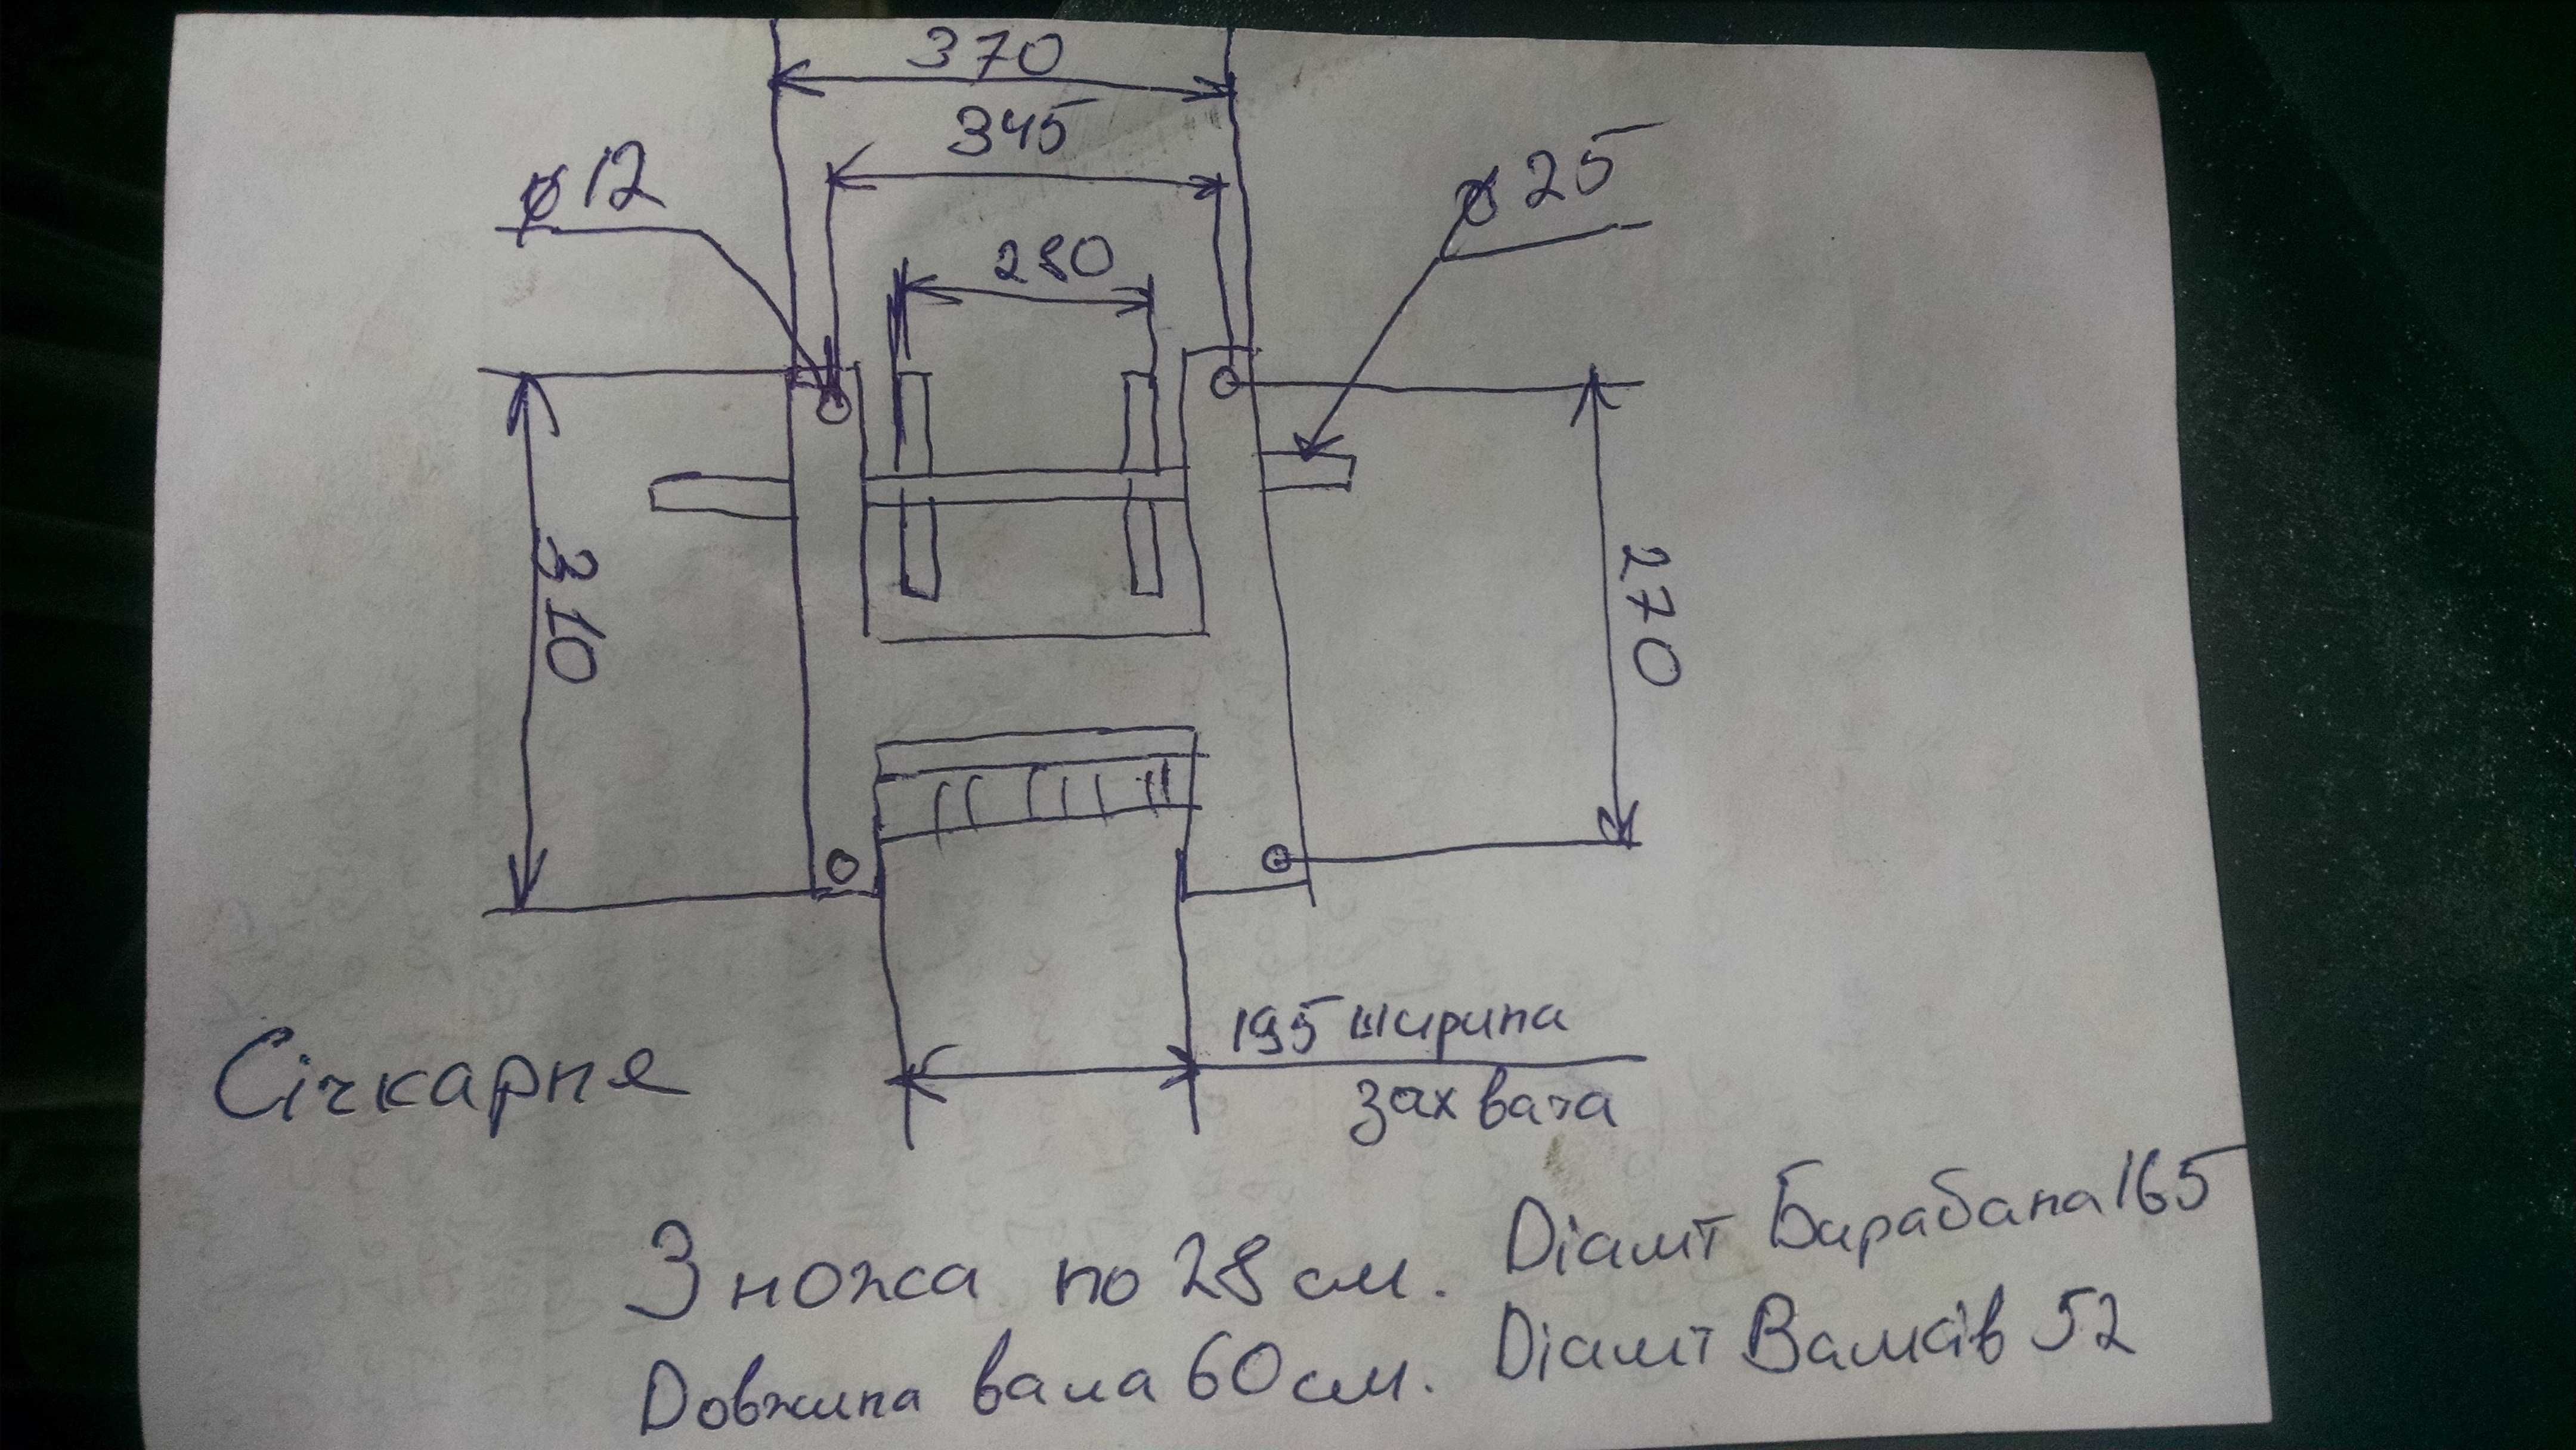 370
345
ø12
ø25
280
310
270
195 ширина
захвата
Січкарня
3 ножа по 28 см.
Діамт Барабана 165
Довжина вала 60 см.
Діамт Валків 52